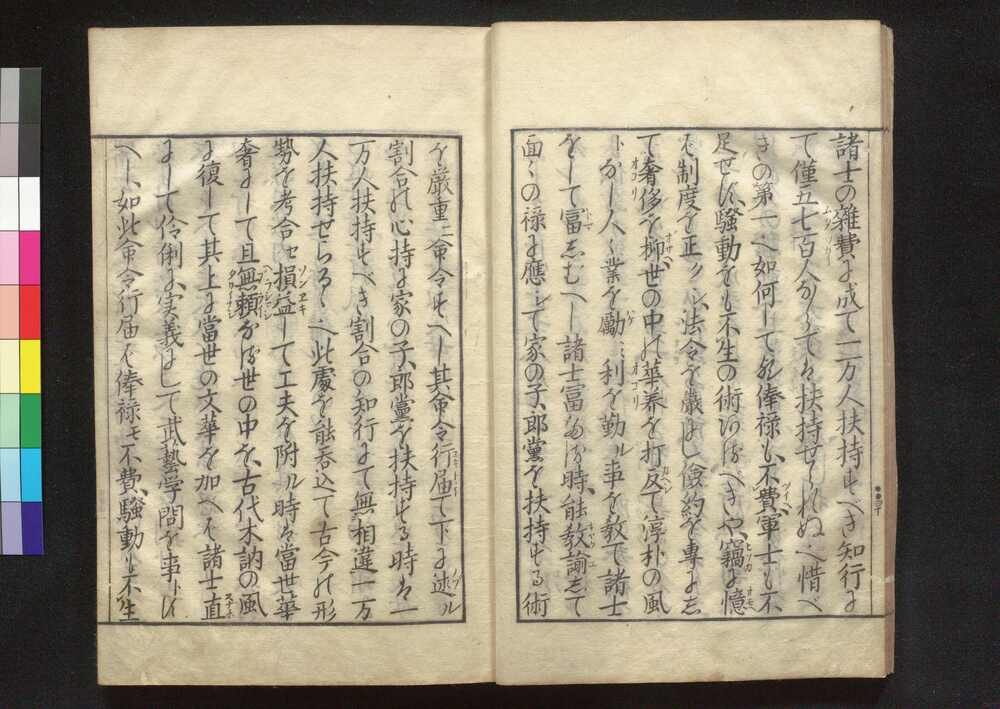 諸士の雑費に成て一万人扶持すべき知行に
て僅五七百人ならでは扶持せられぬハ惜べ
きの第一ハ如何して能俸禄も不費軍士も不
足せず騒動をも不生の術あるべきや竊に憶
ば制度を正クシ法令を厳にし倹約を専にし
て奢侈を抑世の中の華奔を打反て淳朴の風
になし人々業を励ミ利を勤ル事を教て諸士
をして冨しむへし諸士冨める時能教諭して
面々の禄に應して家の子郎黨を扶持する術
を厳重ニ命令すへし其命令行届て下に述ヘル
割合の心持に家の子郎黨を扶持する時は一
万人扶持すべき割合の知行にて無相違一万
人扶持せらるゝ也此處を能呑込て古今の形
勢を考合セ損益して工夫を附ル時は當世華
奢にして且無頼なる世の中を古代木訥の風
に復して其上に當世の文華を加へば諸士直
にして伶俐に実義にして武藝学問を事とす
へし如此命令行届ば俸禄も不費騒動も不生